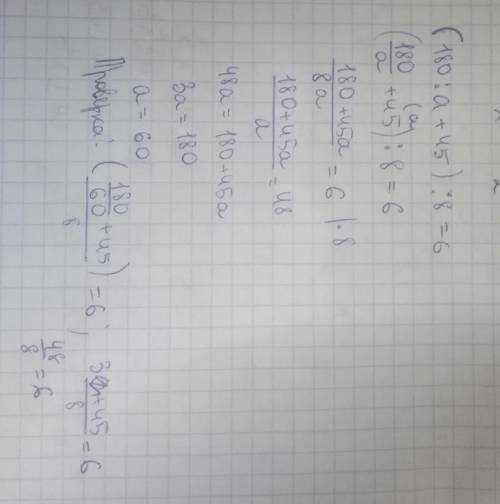 (180 : a + 45) : 8 = 6
(180/a + 45(a) : 8 = 6
(180 + 45a)/8a = 6 |·8
(180 + 45a)/a = 48
48a = 180 + 45a
3a = 180
a = 60
Проверка: (180/60 + 45)/8 = 6; (3 + 45)/8 = 6
48/8 = 6